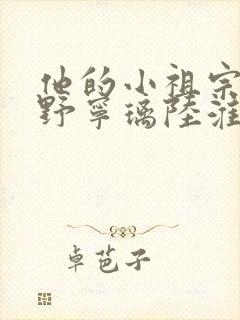 他的小祖宗
野寧璃陸淮
卓芭子